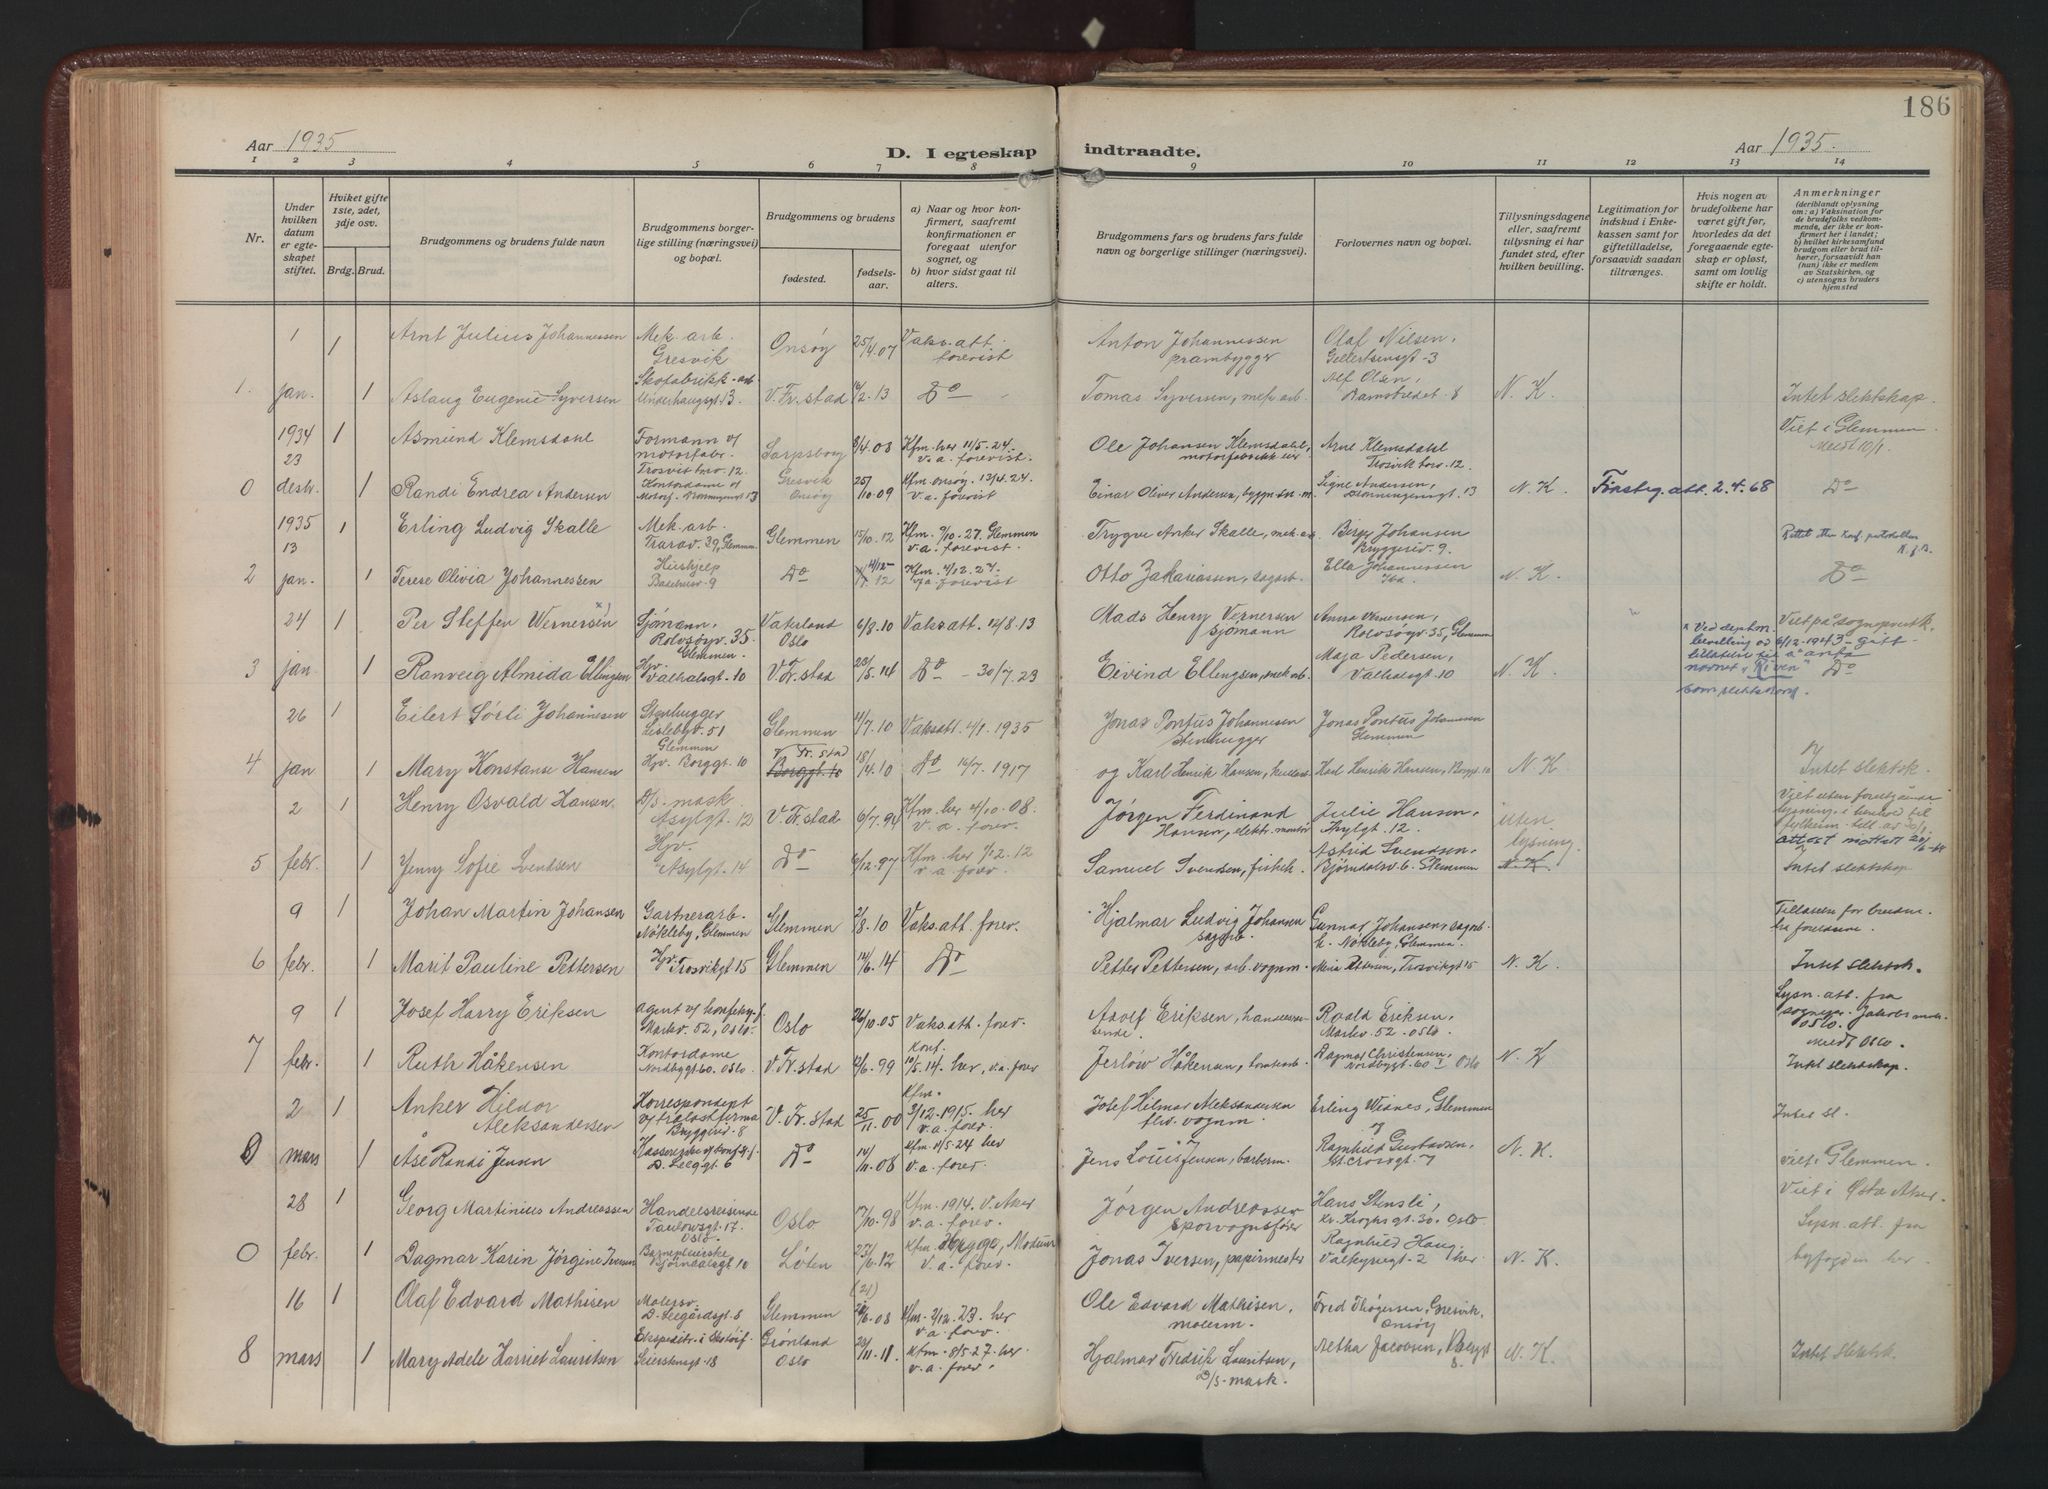 186
Aar 1935
D. I egteskap indtraadte.
Aar 1935.
1 2 3 4 5 6 7 8 9 10 11 12 13 14
Nr.
Under hvilken datum er egteskapet stiftet.
Hviket gifte 1ste, 2det, 3dje osv.
Brdg. Brud.
Brudgommens og brudens fulde navn
Brudgommens borgerlige stilling (næringsvei) og bopæl.
Brudgommens og brudens
fødested.
fødselsaar.
a) Naar og hvor konfirmert, saafremt konfirmationen er foregaat utenfor sognet, og
b) hvor sidst gaat til alters.
Brudgommens fars og brudens fars fulde navn og borgerlige stillinger (næringsvei).
Forlovernes navn og bopæl.
Tillysningsdagene eller, saafremt tillysning ei har fundet sted, efter hvilken bevilling.
Legitimation for indskud i Enkekassen samt for giftetilladelse, forsaavidt saadan tiltrænges.
Hvis nogen av brudefolkene har været gift før, hvorledes da det foregaaende egteskap er opløst, samt om lovlig skifte er holdt.
Anmerkninger (deriblandt oplysning om: a) Vaksination for de brudefolks vedkommende, der ikke er konfirmert her i landet; b) hvilket kirkesamfund brudgom eller brud tilhører, forsaavidt han (hun) ikke er medlem av Statskirken, og c) utensogns bruders hjemsted
1 1 Arnt Julius Johannessen Mek. arb. Gresvik Onsøy 25/4.07 Vaks. att. forevist Anton Johannessen prambygger Olaf Nilsen, Gellertsensgt. 3
1. jan. 1 Aslaug Eugenie Syversen Skofabrikk-arb. Underhaugsgt. 13 V. Fr. stad 2. 13 Do Tomas Syversen, mek. arb. Alf Olsen, 8 N. K. Intet slektskap.
1934 23 1 Asmund Klemsdahl Formann v/ motorfabr. Trosvik brv. 12 Sarpsborg 3/4.08 Kfm. her 11/5.24. v. a. forevist Ole Johansen Klemsdahl, motorfabrikkeier Arne Klemsdahl Trosvik brv. 12 Viet i Glemmen Medt 10/1
0 desbr. 1 Randi Endrea Andersen Kontordame v/ Motorf. 13 Gresvik Onsøy 25/10 09 Kfm. Onsøy. 13/4.24. v. a. forevist Einar Oliver Andersen, Signe Andersen, 13 N. K. Førsteg. att. 2.4.68 Do
1935 13 1 Erling Ludvig Skalle Mek. arb. Trarav. 39, Glemmen Glemmen 15/10.12 Kfm. 9/10.27. Glemmen v. a. forevist Trygve Anker Skalle, mek. arb. Birger Johansen Bryggeriv. 9.
2 jan. 1 Terese Olivia Johannessen Hushjelp 9 Do 12 Kfm. 4/12.27. v. a. forevist Otto Zakariassen, sagarb. Ella Johannessen Ibd. N. K. Do
24 1 Per Steffen Wernersen Sjømann, Rolvsøyv. 35. Glemmen. Vaterland Oslo 6/3.10 Vaks. att. 12/8.13 Mads Henry Wernersen sjømann Anna Wernersen, Rolvsøyv. 35, Glemmen Ved deptm. bevilling av 6/12-1943 gitt tillatelse til å anta navnet "Riven" som slektsnavn Viet på sogneprestk.
3 jan. 1 Ranveig Almida Ellingsen Hjv. Valhalsgt. 10 V. Fr. stad 23/5.14 Do - 30/7.23 Eivind Ellingsen, mek. arb. Maja Pedersen, Valhalsgt. 10 N. K. Do
26 1 Eilert Sørli Johannesen Stenhugger Lislebyv. 51 Glemmen Glemmen 11/7.10 Vaks. att. 4/1.1935 Jonas Pontus Johannesen stenhugger Jonas Pontus Johannesen Glemmen
4 jan 1 Mary Konstanse Hansen Hjv. Borggt. 10 V. Fr. stad Borggt. 10 18/14.10 Do 14/7.1917 og Karl Henrik Hansen, Karl Henrik Hansen, Borggt. 10 N. K. Intet slektsk.
2 1 Henry Osvald Hansen. D/S-mask Asylgt. 12 V. Fr. stad 6/7.94 Kfm. her 4/10.08. v. a. forev. Jørgen Ferdinand Hansen, elektr. montør Julie Hansen, Asylgt. 12. uten lysning. Viet uten foregående lysning i henhold til fylkem. till. av 30/1.
5 febr. 1 Jenny Sofie Svendsen Hjv. Asylgt. 14 Do 6/12.97 Kfm. her 1/12.12 v. a. forev. Samuel Svendsen, fiskeh. Astrid Svendsen, Bjørndalsv. 6. Glemmen N. K. Intet slektskap
9 1 Johan Martin Johansen Gartnerarb. Nøkleby, Glemmen Glemmen 2/8.10 Vaks. att. forev. Hjalmar Ludvig Johansen sagarb. Gunnar Johansen sagarb. Nøkleby, Glemmen. Tillatelse for bruden fra foreldrene.
6 febr. 1 Marit Pauline Pettersen Hjv. Trosvikgt 15 Glemmen 12/6.14 Do Petter Pettersen, arb. vognm. Maria Pettersen, Trosvikgt 15 N. K. Intet slektsk.
9 1 Josef Harry Eriksen Agent v/ konfeksj. f. Markv. 52, Oslo. Oslo 26/10.05 Vaks. att. forev. Adolf Eriksen, handelsreisende. Roald Eriksen, Markv. 52. Oslo. Lysn. att. fra sognepr. Jakobs mek. Oslo. Medt Oslo
7 febr. 1 Ruth Håkensen Kontordame Nordbygt 60. Oslo V. Fr. stad 12/6.99 Konf. 10/5.14. her, v. a. forev Jerløw Håkensen, Dagmar Christensen, Nordbygt. 60 I Oslo N. K Intet slektskap.
2 1 Anker Hildor Aleksandersen Korrespondent v/ trelastfirma Bryggeriv. 8 V. Fr. stad 25/11.00 Kfm. 3/12.1915. her v. a. forev. Josef Hilmar Aleksandersen vognm. Erling Widnes, Glemmen og Intet sl.
8 mars 1 Åse Randi Jensen Kassererske v/ konf. f. D. Leeggt 6 Do 14/11.08 Kfm. 11/5.24 her v. a. forev. Jens Louis Jensen, barberm. Ragnhild Gustavsen, St. Crosgt. 7 N. K. viet i Glemmen.
28 1 Georg Martinius Andreassen Handelsreisende Taulowsgt. 17. Oslo Oslo 7/10.98 Kfm. 1914. V. Aker v. a. forev. Jørgen Andreassen sporvognsfører Hans Stensli, Kr. Kroghsgt. 30. Oslo Viet i Østre Aker. Lysn. att. fra
0 febr. 1 Dagmar Karin Jørgine Iversen Barnepleierske Bjørndalsgt 10 Løten 27/6.12 Kfm. Modum v. a. forev. Jonas Iversen, papirmester Ragnhild Haug. Valkyriegt. 2 her N. K. byfogden her.
16 1 Olaf Edvard Mathisen Malersv. D. Leegårdsgt. 8 Glemmen (21) 6.08 Kfm. 2/12.23. her v. a. forev. Ole Edvard Mathisen, malerm. Fred Thøgersen, Gresvik, Onsøy
8 mars 1 Mary Adele Harriet Lauritsen Ekspeditr. i Skotøif. Seiersborggt. 18 Grønland Oslo 11.11. Kfm. 8/5.27. her v. a. forev. Hjalmar Fredrik Lauritsen, D/S-mask. Aetha Jacobsen, 8. N. K. Intet slektsk.